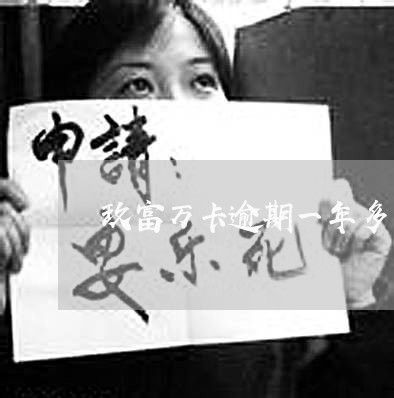 申請：
玖富万卡逾期一年多
安乐死